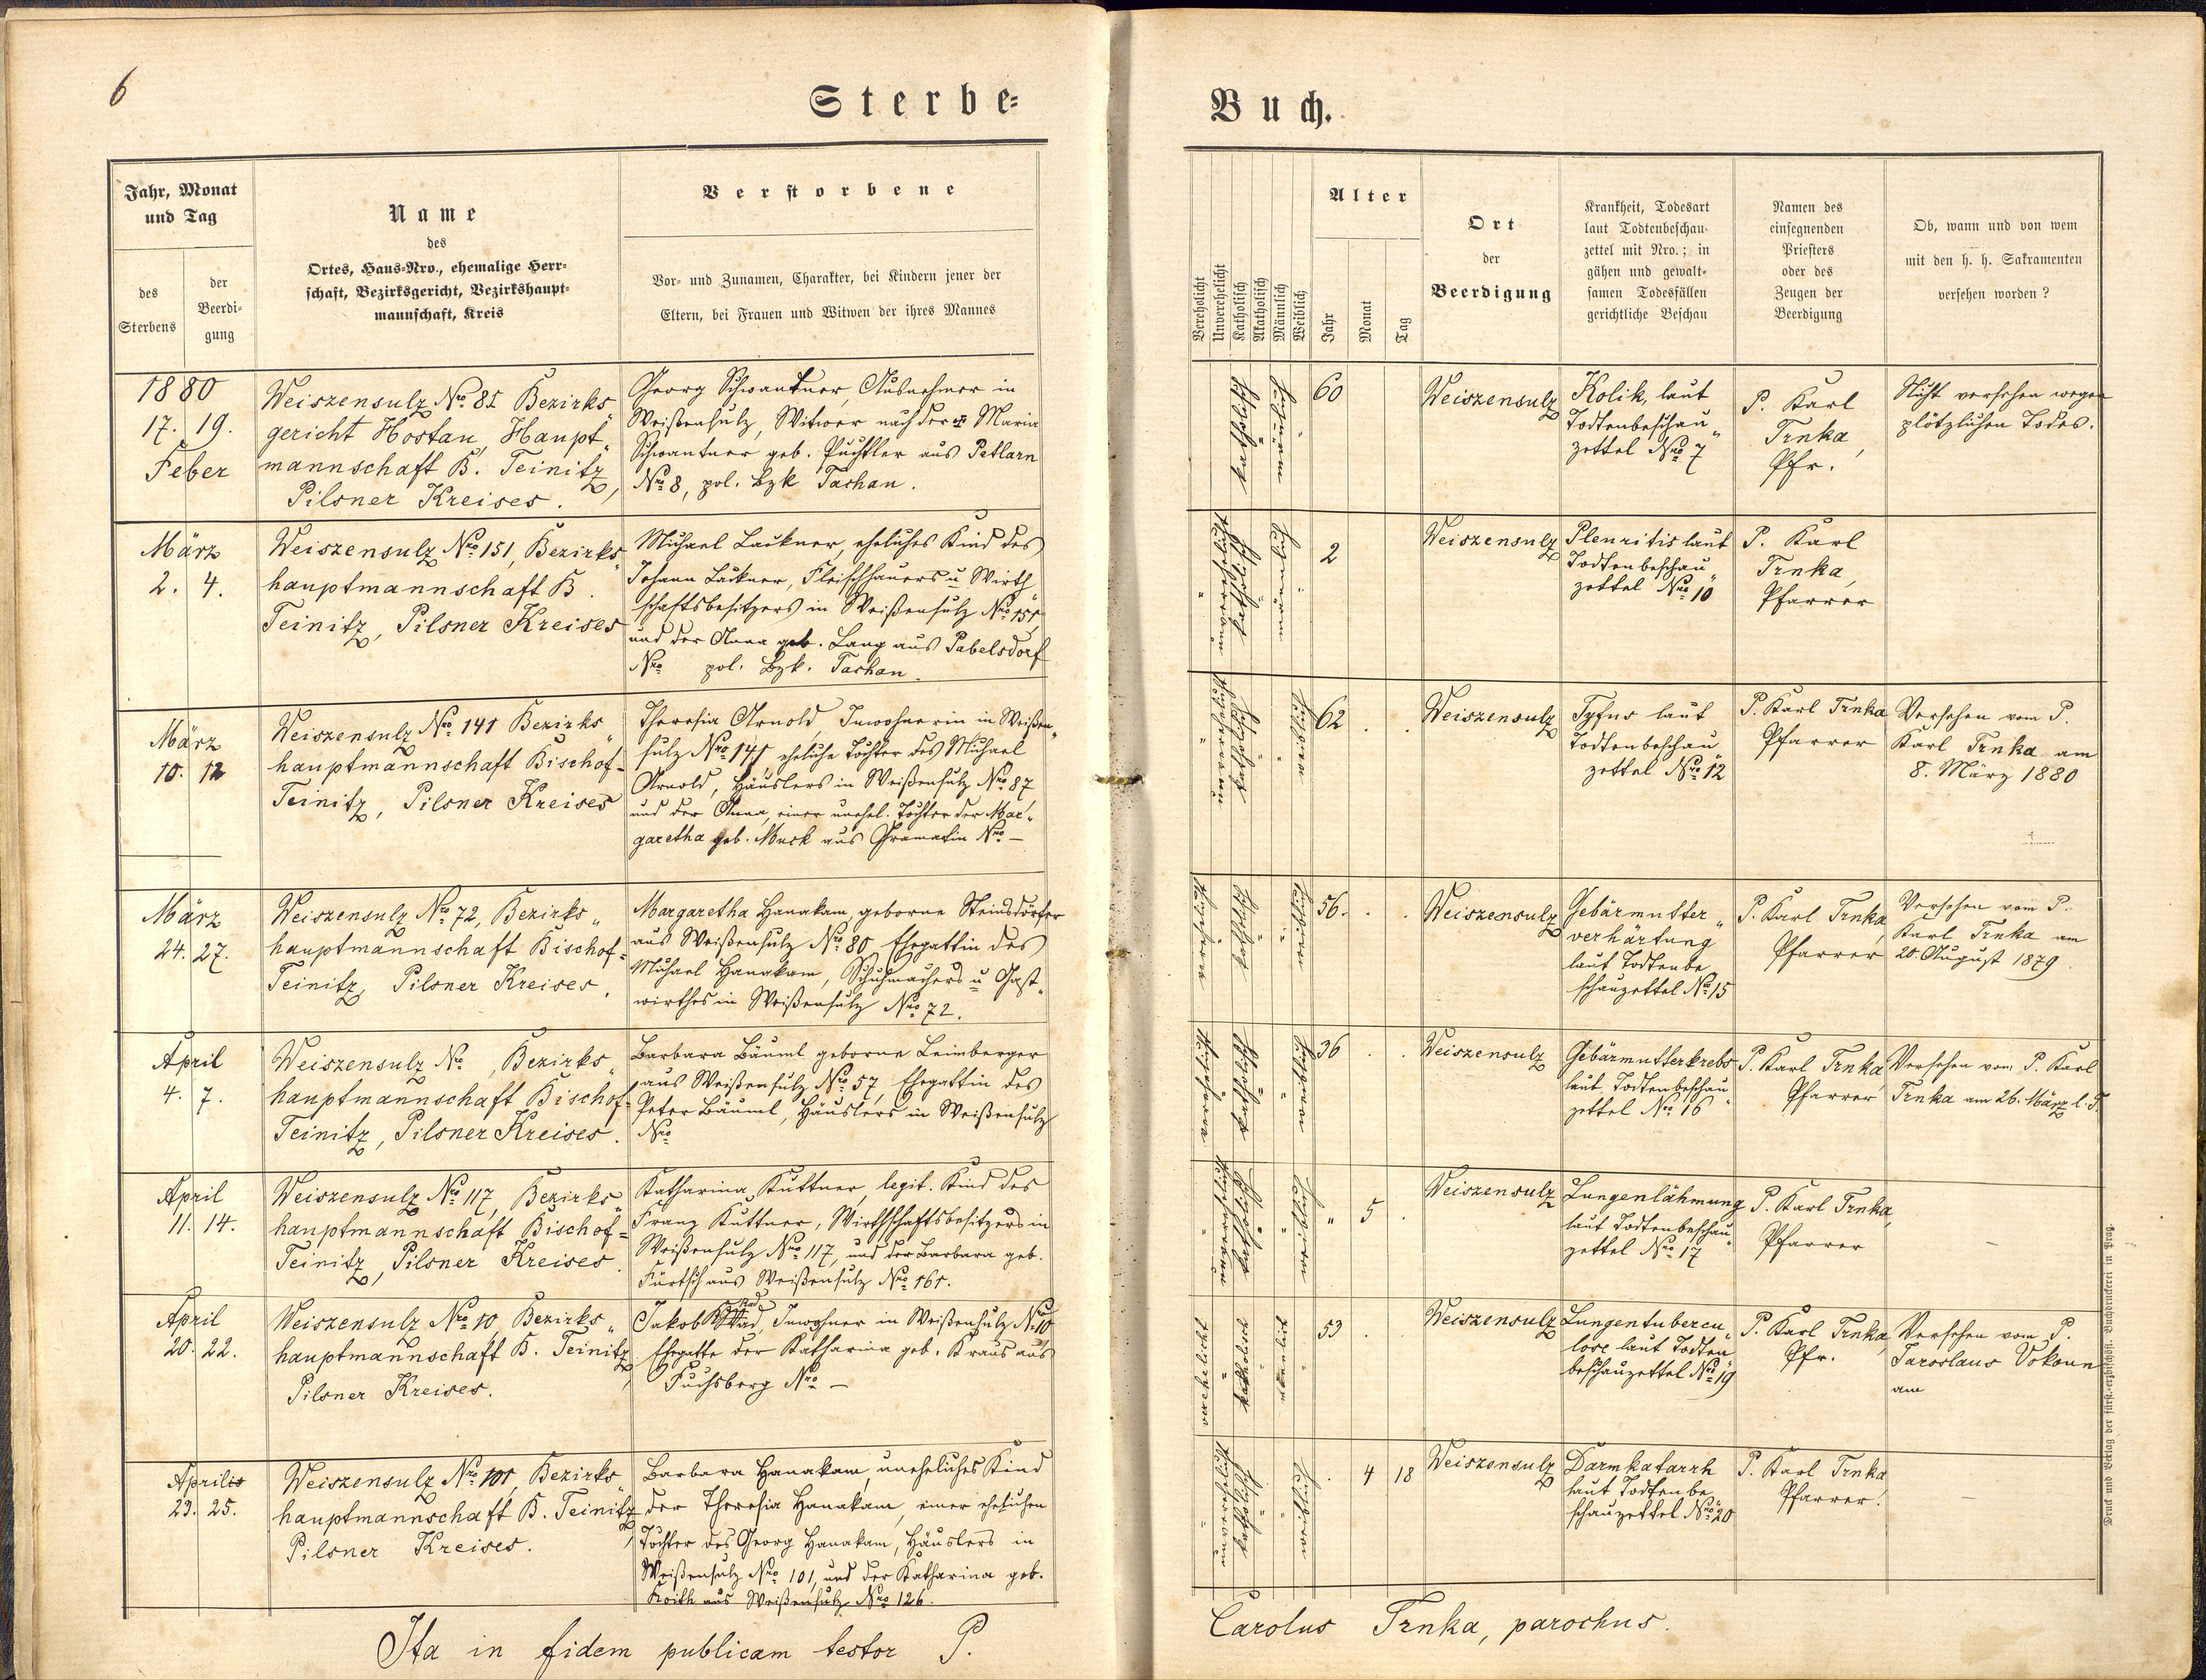 6
Sterbe=
Buch.
Jahr, Monat
und Tag
des
Sterbens
der
Beerdi=
gung
Name
des
Ortes, Haus=Nro., ehemalige Herr=
schaft, Bezirksgericht, Bezirkshaupt=
mannschaft, Kreis
Verstorbene
Vor= und Zunamen, Charakter, bei Kindern jener der
Eltern, bei Frauen und Witwen der ihres Mannes
Verehelicht
Unverehelicht
Katholisch
Akatholisch
Männlich
Weiblich
Alter
Jahr
Monat
Tag
Ort
der
Beerdigung
Krankheit, Todesart
laut Todtenbeschau=
zettel mit Nro.; in
gähen und gewalt=
samen Todesfällen
gerichtliche Beschau
Namen des
einsegnenden
Priesters
oder des
Zeugen der
Beerdigung
Ob, wann und von wem
mit den h. h. Sakramenten
versehen worden?
1880
17. 19.
Feber
Weiszensulz Nro 81 Bezirks„
gericht Hostau, Haupt„
mannschaft B. Teinitz,
Pilsner Kreises.
Georg Schwantner, Ausnehmer in
Weißensulz, Witwer nach der Maria
Schwantner geb. Puchtler aus Petlarn
Nro 8, pol. Bzk Tachau.
katholisch
männlich
60
Weiszensulz
Kolik, laut
Todtenbeschau„
zettel Nro 7
P. Karl
Trnka,
Pfr.
Nicht versehen wegen
plötzlichen Todes.
März
2. 4.
Weiszensulz Nro 151, Bezirks„
hauptmannschaft B.
Teinitz, Pilsner Kreises
Michael Lackner, eheliches Kind des
Johann Lackner, Fleischhauers u Wirth„
schaftsbesitzers in Weißensulz Nro 151,
und der Anna geb. Lang aus Pabelsdorf
Nro pol. Bzk. Tachau.
unverehelicht
katholisch
männlich
2
Weiszensulz
Pleuritis laut
Todtenbeschau„
zettel Nro 10
P. Karl
Trnka,
Pfarrer
März
10. 12
Weiszensulz Nro 141 Bezirks„
hauptmannschaft Bischof=
Teinitz, Pilsner Kreises
Theresia Arnold, Inwohnerin in Weißen„
sulz Nro 141 eheliche Tochter des Michael
Arnold, Häuslers in Weißensulz Nro 87
und der Anna, einer unehel. Tochter der Mar„
garetha geb. Muck aus Gramatin Nro –
unverehelicht
katholisch
weiblich
62
Weiszensulz
Tyfus laut
Todtenbeschau„
zettel Nro 12
P. Karl Trnka
Pfarrer
Versehen vom P.
Karl Trnka am
8. März 1880
März
24. 27.
Weiszensulz Nro 72, Bezirks„
hauptmannschaft Bischof=
Teinitz, Pilsner Kreises.
Margaretha Hanakam, geborne Steinsdörfer
aus Weißensulz Nro 80, Ehegattin des
Michael Hanakam, Schuhmachers u Gast„
wirthes in Weißensulz Nro 72.
verehelicht
katholisch
weiblich
56.
Weiszensulz
Gebärmutter„
verhärtung
laut Todtenbe„
schauzettel Nro 15
P. Karl Trnka,
Pfarrer
Versehen vom P.
Karl Trnka am
20. August 1879.
April
4. 7.
Weiszensulz Nro , Bezirks„
hauptmannschaft Bischof=
Teinitz, Pilsner Kreises.
Barbara Bäuml geborne Leimberger
aus Weißensulz Nro 57, Ehegattin des
Peter Bäuml, Häuslers in Weißensulz
Nro
verehelicht
katholisch
weiblich
36
Weiszensulz
Gebärmutterkrebs
laut Todtenbeschau„
zettel Nro 16
P. Karl Trnka,
Pfarrer
Versehen vom P. Karl
Trnka am 26. März l. J.
April
11. 14.
Weiszensulz Nro 117, Bezirks„
hauptmannschaft Bischof=
Teinitz, Pilsner Kreises.
Katharina Kuttner, legit. Kind des
Franz Kuttner, Wirthschaftsbesitzers in
Weißensulz Nro 117, und der Barbara geb.
Fürtsch aus Weißensulz Nro 161.
unverehelicht
katholisch
weiblich
„ 5
Weiszensulz
Lungenlähmung
laut Todtenbeschau„
zettel Nro 17
P. Karl Trnka,
Pfarrer
–
April
20. 22.
Weiszensulz Nro 10, Bezirks„
hauptmannschaft B. Teinitz,
Pilsner Kreises.
Jakob Inwohner in Weißensulz Nro 10
Ehegatte der Katharina geb. Kraus aus
Fuchsberg Nro –
verehelicht
katholisch
männlich
53
Weiszensulz
Lungentubercu„
lose laut Todten„
beschauzettel Nro 19
P. Karl Trnka,
Pfr.
Versehen vom P.
Jaroslaus Vokoun
am
Aprilis
23. 25.
Weiszensulz Nro 101, Bezirks„
hauptmannschaft B. Teinitz,
Pilsner Kreises.
Barbara Hanakam, uneheliches Kind
der Theresia Hanakam, einer ehelichen
Tochter des Georg Hanakam, Häuslers in
Weißensulz Nro 101, und der Katharina geb.
Koith aus Weißensulz Nro 126.
unverehelicht
katholisch
weiblich
4 18
Weiszensulz
Darmkatarrh
laut Todtenbe„
schauzettel Nro 20
P. Karl Trnka
Pfarrer.
–
Ita in fidem publicam testor P.
Carolus Trnka, parochus.
Druck und Verlag der fürst.=erzbischöfl. Buchdruckerei in Prag.